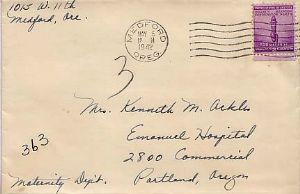 1015 W. 11th
Medford, Ore.
MEDFORD
1942
OREG.
3
Mrs. Kenneth M. Ackles
Emanuel Hospital
2800 Commercial
Portland, Oregon
363
Maternity Dept.